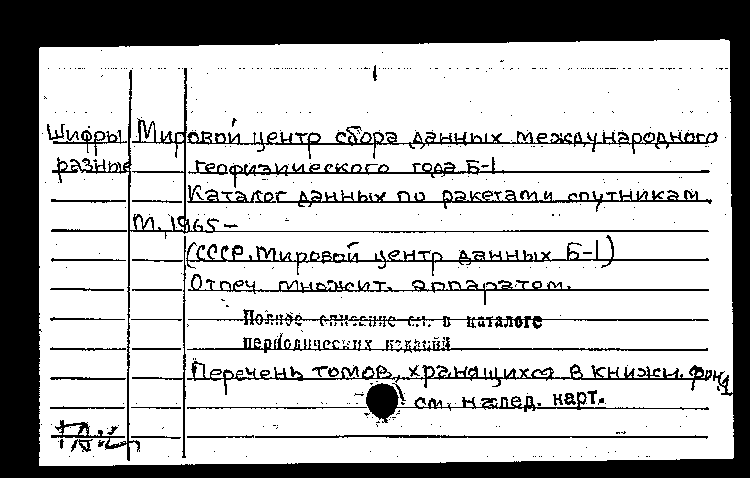 Шифры Мировой центр сбора данных международного
разные геофизического года Б-1.
Каталог данных по ракетам и спутникам.
М., 1965 –
(СССР. Мировой центр данных Б-1)
Отпеч. множит. аппаратом.
Полное описание см. в каталоге
периодических изданий
Перечень томов, хранящихся в книжн. фонд
см. на след. карт.